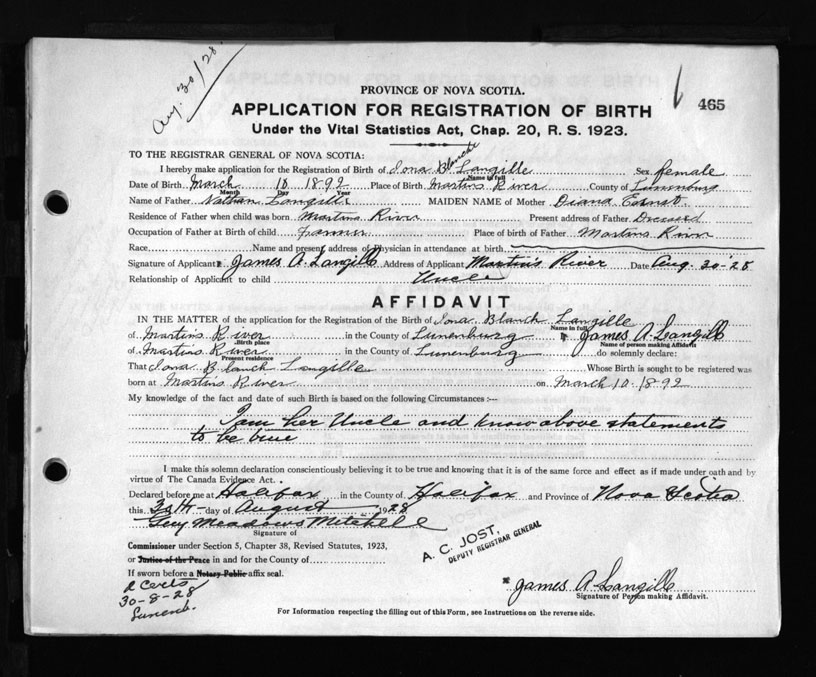 Aug. 30/28.
PROVINCE OF NOVA SCOTIA.
465
APPLICATION FOR REGISTRATION OF BIRTH
Under the Vital Statistics Act, Chap. 20, R. S. 1923.
TO THE REGISTRAR GENERAL OF NOVA SCOTIA:
I hereby make application for the Registration of Birth of Iona Blanche Langille Sex female
Name in full
Date of Birth March 10 1892 Place of Birth Martins River County of Lunenburg
Month Day Year
Name of Father Nathan Langille MAIDEN NAME of Mother Diana Ernst
Residence of Father when child was born Martins River Present address of Father Deceased
Occupation of Father at Birth of child Farmer Place of birth of Father Martins River
Race Name and present address of Physician in attendance at birth
Signature of Applicant James A. Langille Address of Applicant Martin's River Date Aug. 30-28
Relationship of Applicant to child Uncle
AFFIDAVIT
IN THE MATTER of the application for the Registration of the Birth of Iona Blanch Langille
Name in full
of Martins River in the County of Lunenburg I James A. Langille
Birth place Name of person making Affidavit
of Martins River in the County of Lunenburg do solemnly declare:
Present residence
That Iona Blanch Langille Whose Birth is sought to be registered was
born at Martins River on March 10. 1892
My knowledge of the fact and date of such Birth is based on the following Circumstances :—
I am her Uncle and know above statements
to be true
I make this solemn declaration conscientiously believing it to be true and knowing that it is of the same force and effect as if made under oath and by
virtue of The Canada Evidence Act.
Declared before me at Halifax in the County of Halifax and Province of Nova Scotia
this 30th day of August 1928
Guy Meadows Mitchell
Signature of
Commissioner under Section 5, Chapter 38, Revised Statutes, 1923,
or Justice of the Peace in and for the County of
If sworn before a Notary Public affix seal.
A. C. JOST,
DEPUTY REGISTRAR GENERAL
2 Certs
30-8-28
Lunenb.
James A Langille
Signature of Person making Affidavit.
For Information respecting the filling out of this Form, see Instructions on the reverse side.